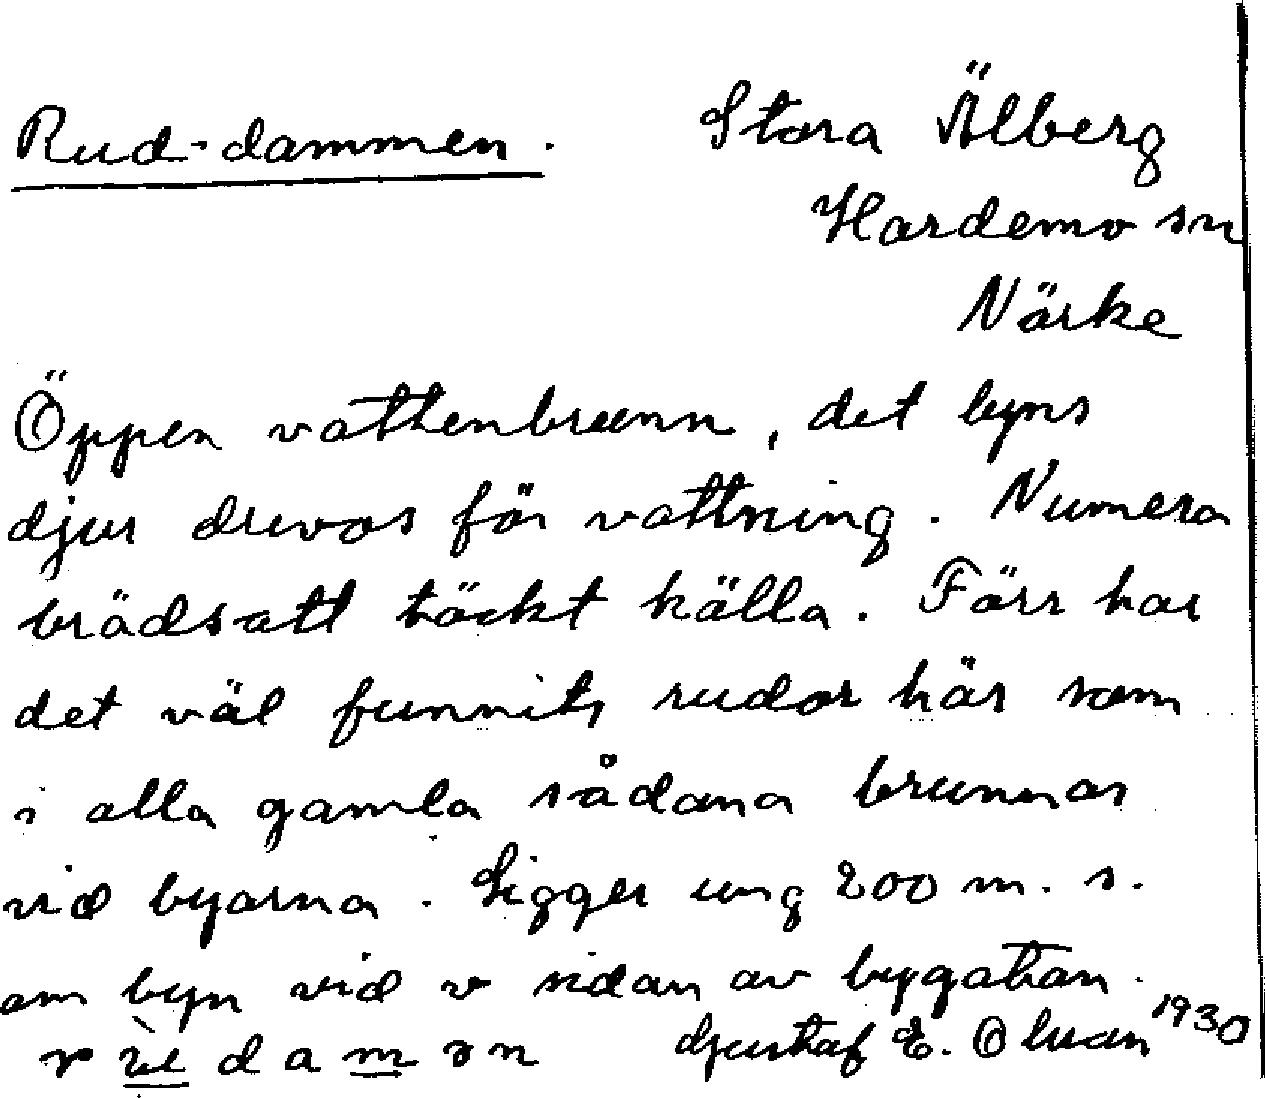 Rud-dammen. Stora Älberg
Hardemo sn
Närke
Öppen vattenbrunn, det byns
djur drevos för vattning. Numera
brädsatt täckt källa. Förr har
det väl funnits rudor här som
i alla gamla sådana brunnar
vid byarna. Ligger ung 200 m. s.
om byn vid v sidan av bygatan.
Gustaf E. Olsson 1930